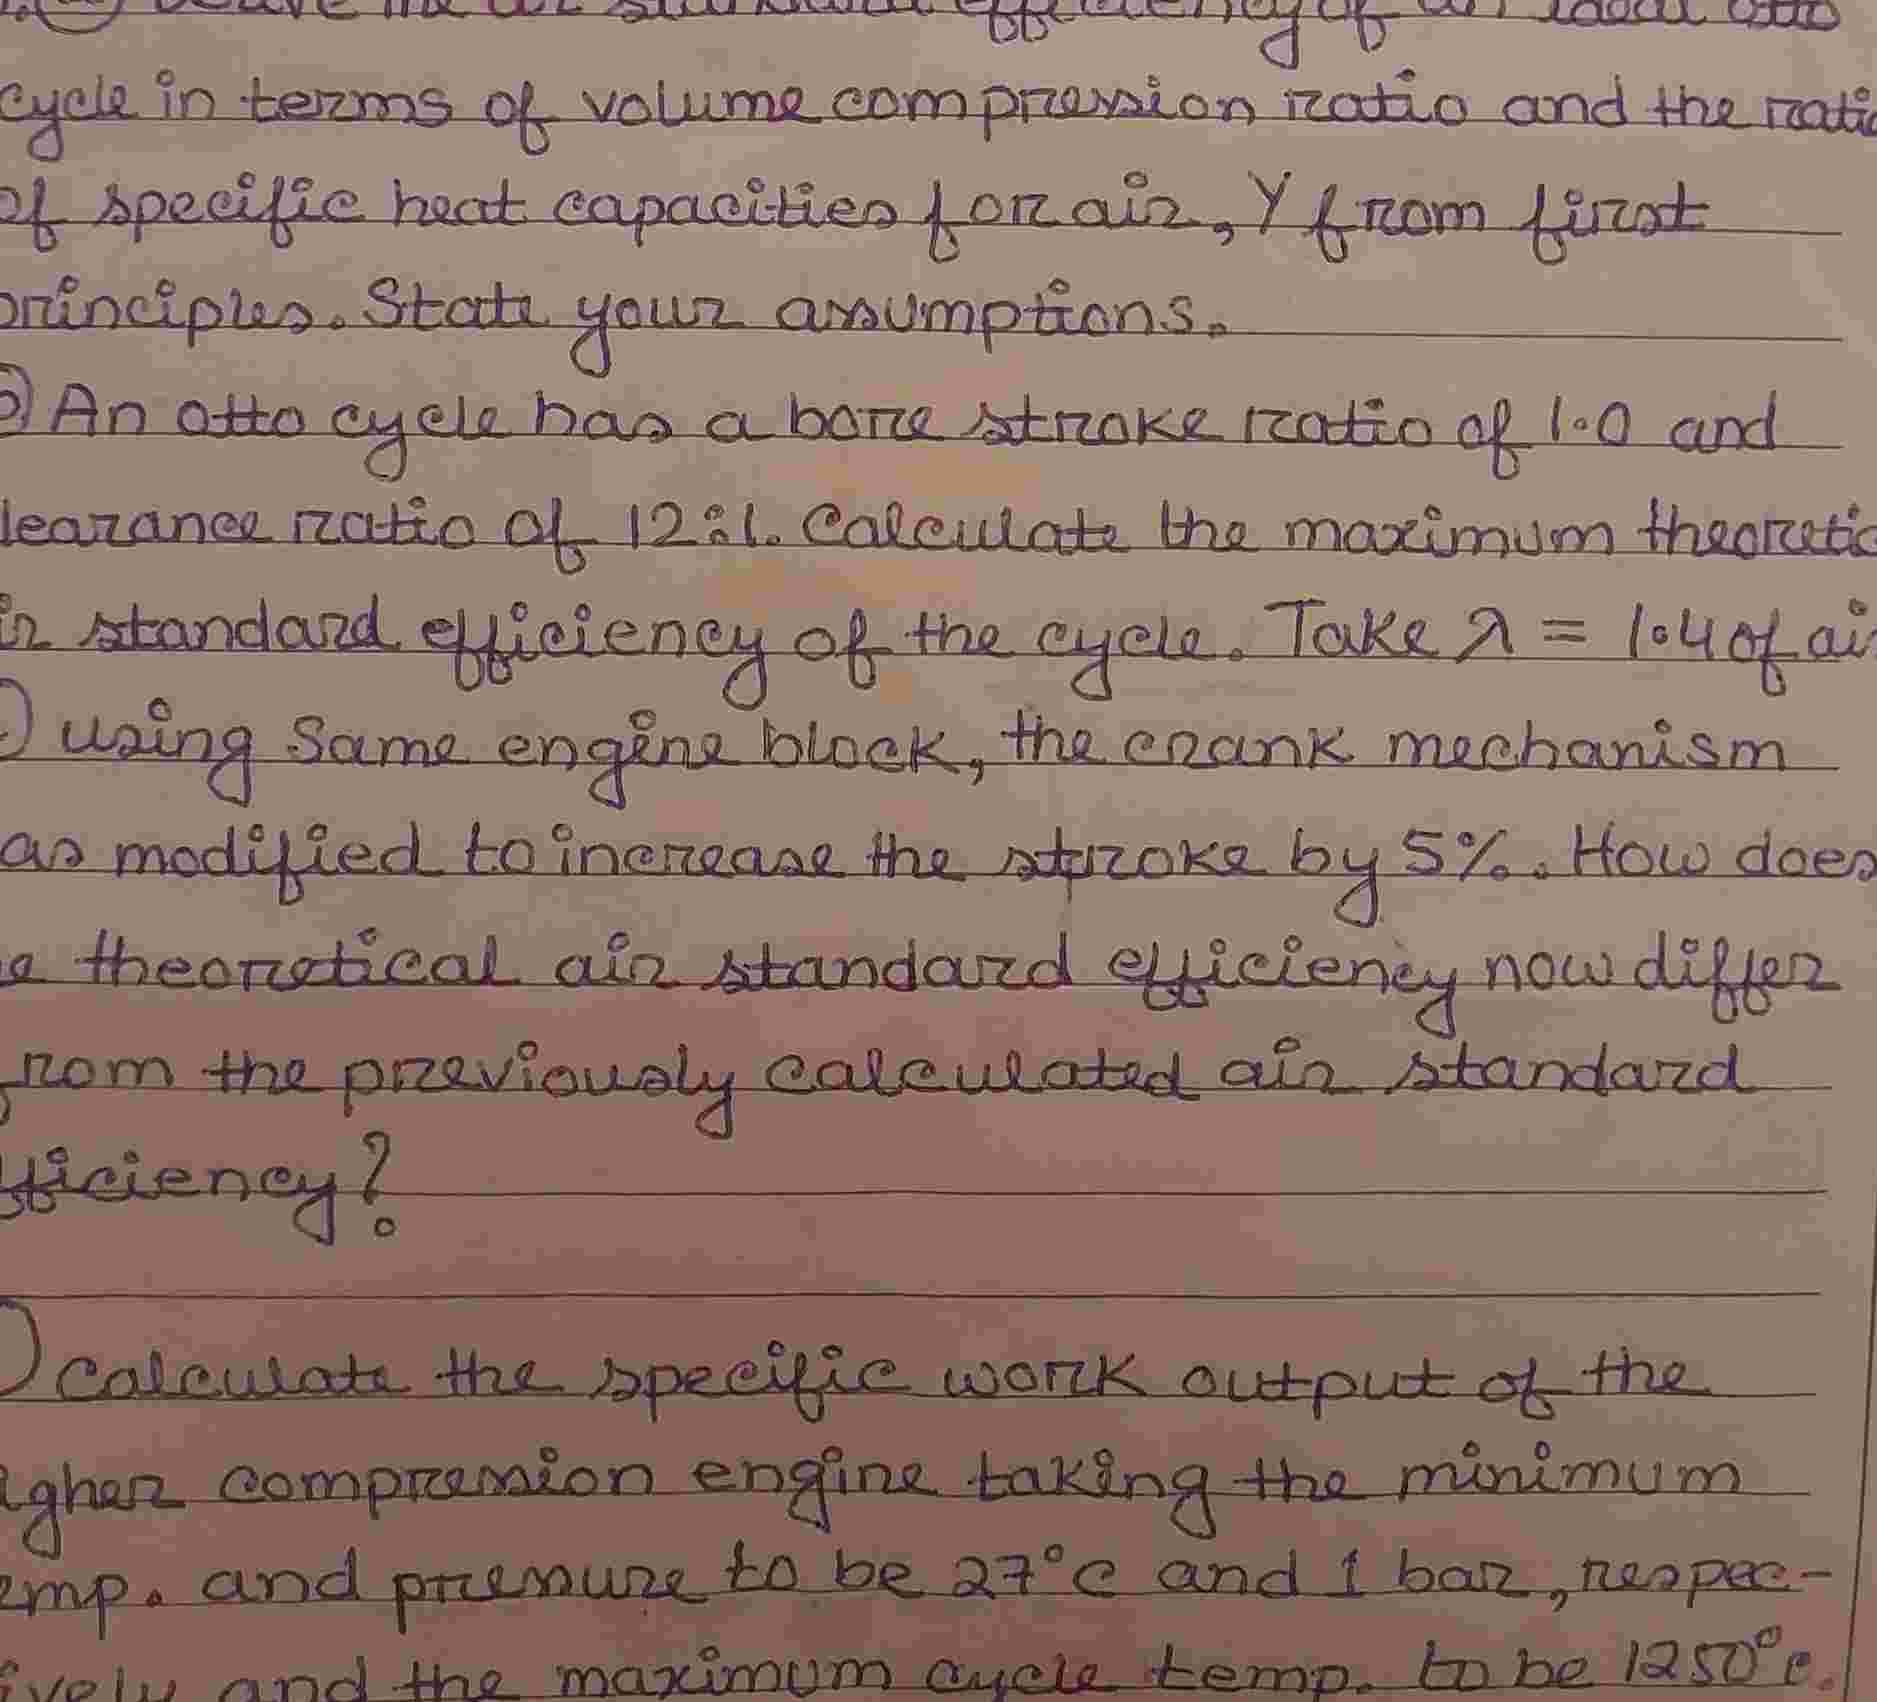 standard efficiency of an ideal otto
cycle in terms of volume compression ratio and the ratio
of specific heat capacities for air, γ from first
principles. State your assumptions.
An otto cycle has a bore stroke ratio of 1.0 and
learance ratio of 12:1. Calculate the maximum theoretic
ir standard efficiency of the cycle. Take λ = 1.4 of air
) using same engine block, the crank mechanism
as modified to increase the stroke by 5%. How does
e theoretical air standard efficiency now differ
from the previously calculated air standard
fficiency?
) Calculate the specific work output of the
igher compression engine taking the minimum
emp. and pressure to be 27°C and 1 bar, respec-
ively and the maximum cycle temp. to be 1250°c.